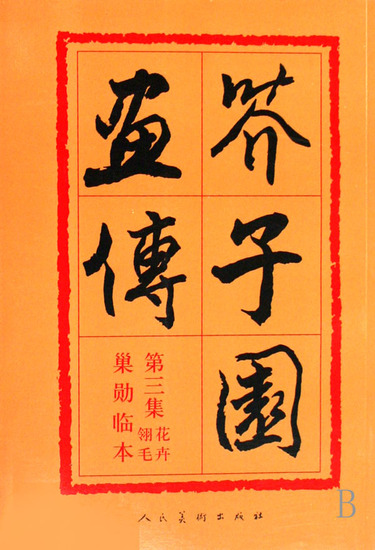 芥子園
畫傳
第三集
花卉
翎毛
巢勋临本
人民美術出版社
B